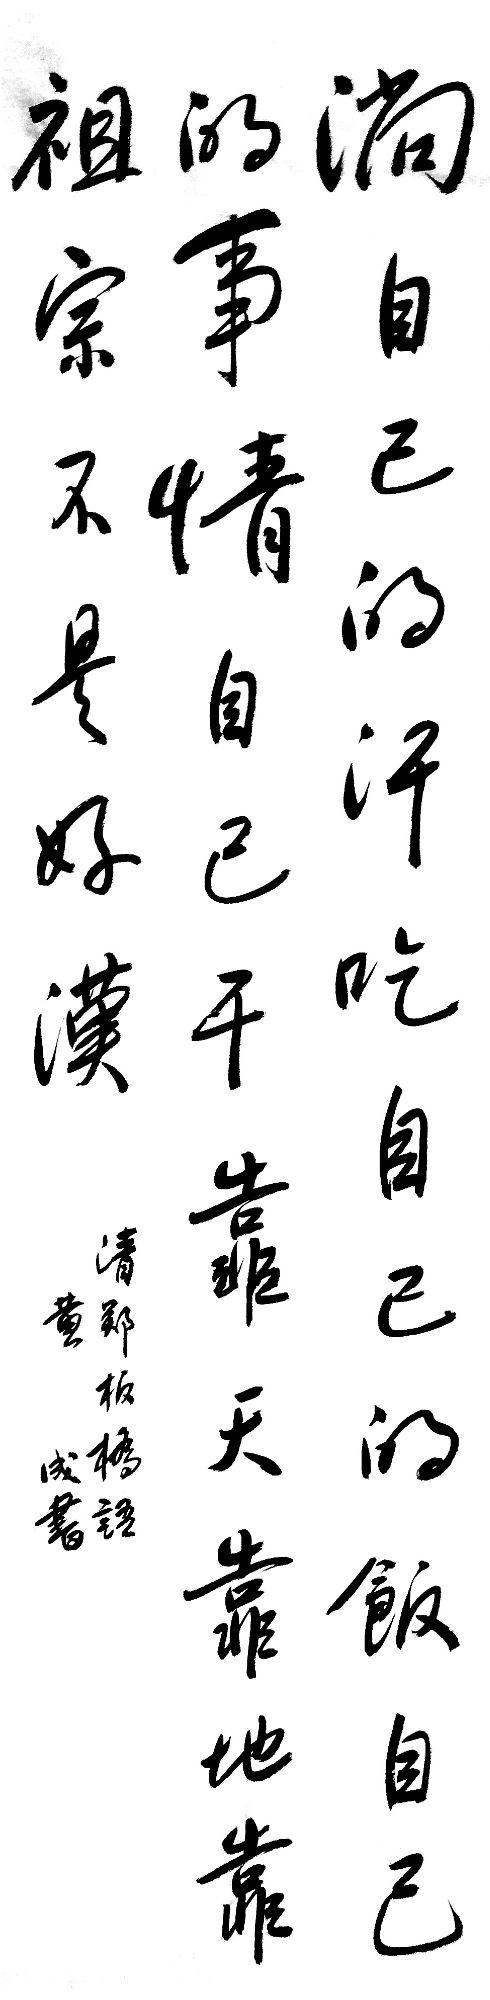 淌自己的汗吃自己的飯自己
的事情自己干靠天靠地靠
祖宗不是好漢
清鄭板橋語
黃成書